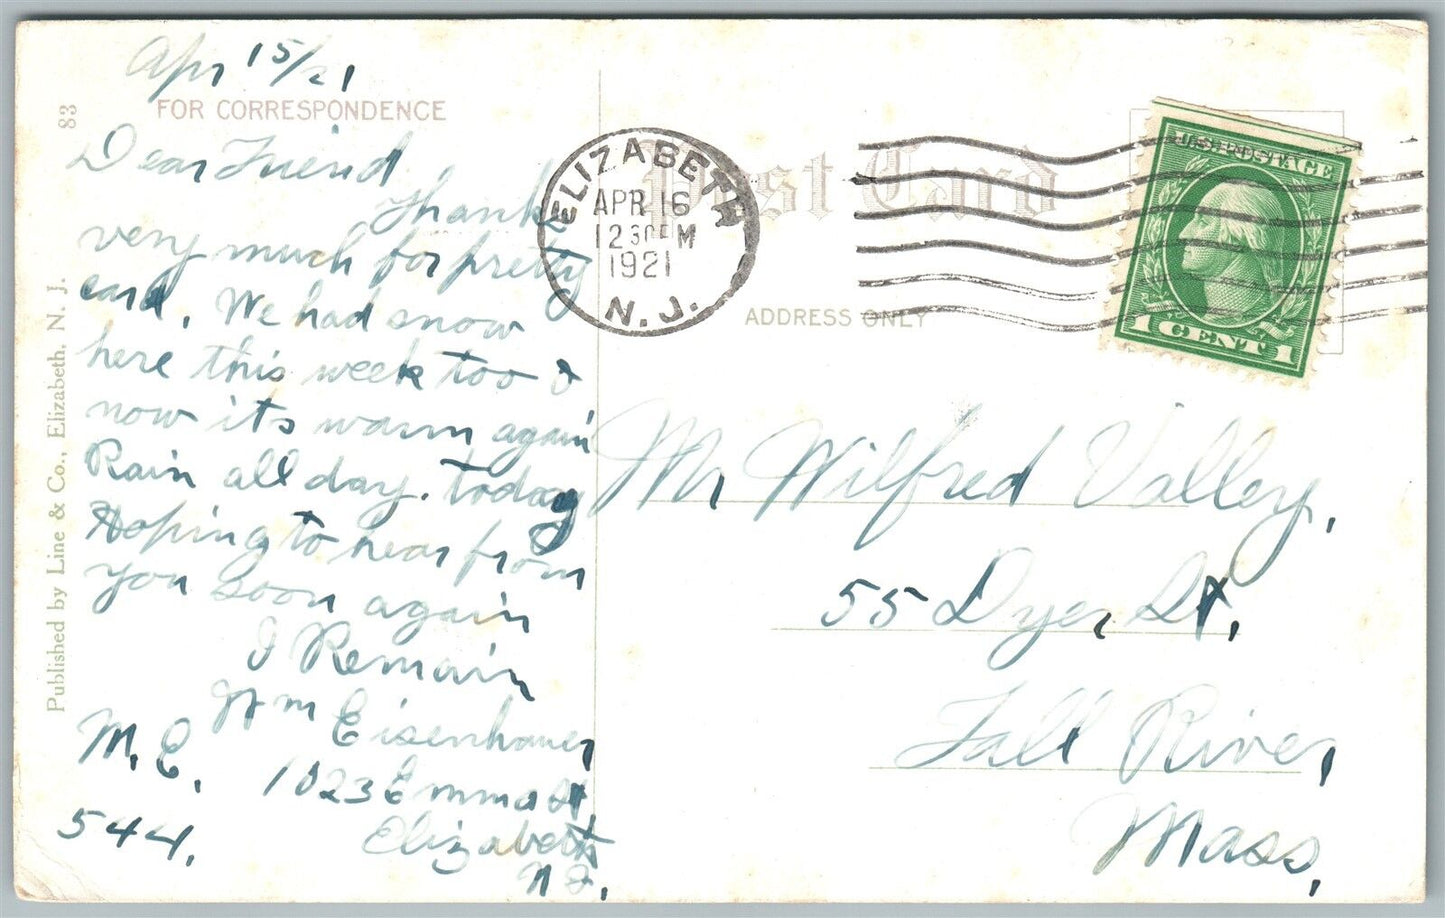 Apr 15/21
FOR CORRESPONDENCE
83
Published by Line & Co., Elizabeth, N. J.
Dear Friend
Thanks
very much for pretty
card. We had snow
here this week too &
now its warm again
Rain all day. today
Hoping to hear from
you soon again
I Remain
Wm Eisenhauer
M.E. 1023 Emma St.
544. Elizabeth
N J.
Post Card
ELIZABETH
APR 16
12 30 PM
1921
N. J.
ADDRESS ONLY
U.S. POSTAGE
1 CENT 1
Mr Wilfred Valley,
55 Dyer St,
Fall River,
Mass,